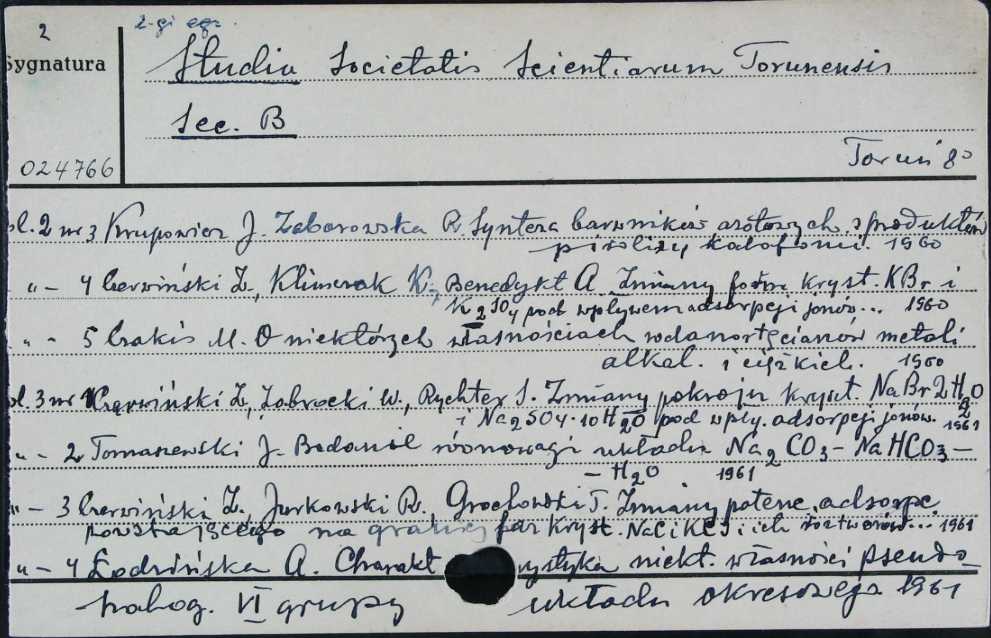 2 2-gi egz.
Sygnatura
Studia Societatis Scientiarum Torunensis
Sec. B
024766
Toruń 8°
ol. 2 nr 3 Krupowicz J. Zaborowska R. Synteza barwników azotowych z produktów
pirolizy kalafonii. 1960
" - 4 Czerwiński Z., Klimczak K., Benedykt A. Zmiany form kryst. KBr i
K2SO4 pod wpływem adsorpcji jonów... 1960
" - 5 Czakis M. O niektórych własnościach wodanortęcianów metali
alkal. i ciężkich. 1960
ol. 3 nr 1 Czerwiński Z., Zabrocki W., Rychter S. Zmiany pokroju kryszt. NaBr 2H2O
i Na2SO4·10H2O pod wpły. adsorpcji jonów. 1961
" - 2 Tomaszewski J. Badanie równowagi układu Na2CO3 - NaHCO3 -
- H2O 1961
" - 3 Czerwiński Z., Jurkowski R. Grochowski T. Zmiany potenc. adsorpc.
powstającego na granicy faz kryszt. NaCl i KCl i ich roztworów... 1961
" - 4 Łodzińska A. Charakt ystyka niekt. własności pseudo-
halog. VI grupy układu okresowego 1961